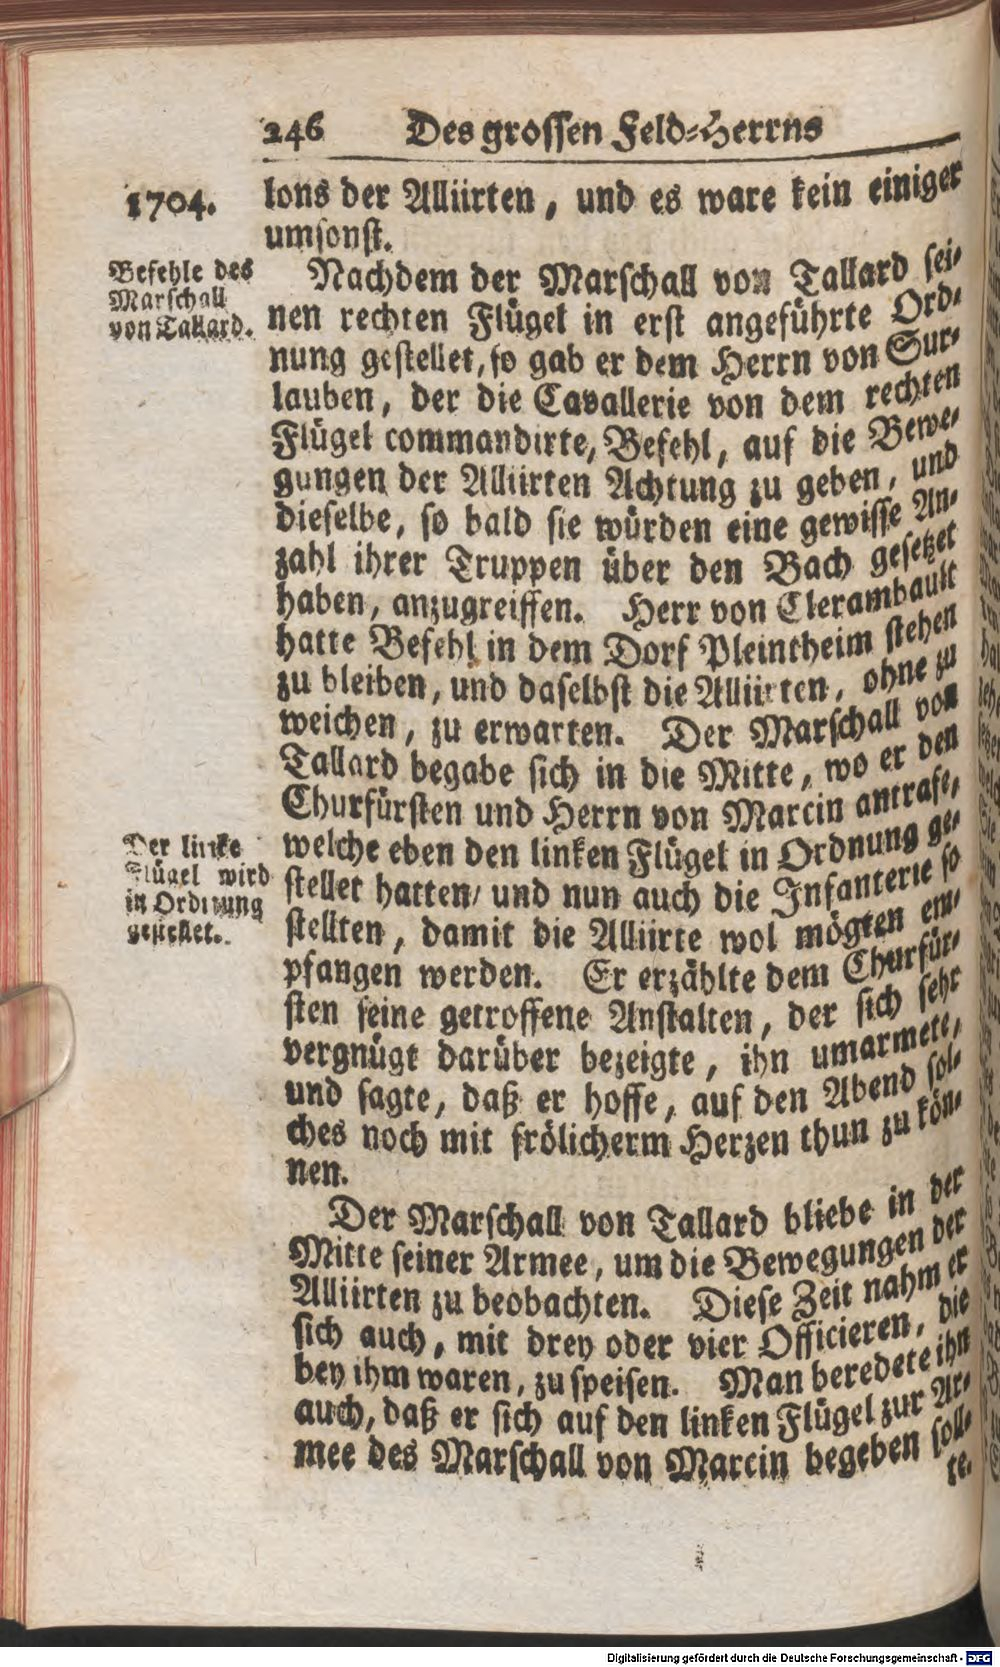 246 Des grossen Feld-Herrns
1704.
lons der Alliirten, und es ware kein einiger
umsonst.
Befehle des
Marschall
von Tallard.
Nachdem der Marschall von Tallard sei-
nen rechten Flügel in erst angeführte Ord-
nung gestellet, so gab er dem Herrn von Sur-
lauben, der die Cavallerie von dem rechten
Flügel commandirte, Befehl, auf die Bewe-
gungen der Alliirten Achtung zu geben, und
dieselbe, so bald sie würden eine gewisse An-
zahl ihrer Truppen über den Bach gesetzet
haben, anzugreiffen. Herr von Clerambault
hatte Befehl in dem Dorf Pleintheim stehen
zu bleiben, und daselbst die Alliirten, ohne zu
weichen, zu erwarten. Der Marschall von
Tallard begabe sich in die Mitte, wo er den
Churfürsten und Herrn von Marcin antrafe,
Der linke
Flügel wird
in Ordnung
gestellet.
welche eben den linken Flügel in Ordnung ge-
stellet hatten, und nun auch die Infanterie so
stellten, damit die Alliirte wol mögten em-
pfangen werden. Er erzählte dem Churfür-
sten seine getroffene Anstalten, der sich sehr
vergnügt darüber bezeigte, ihn umarmete,
und sagte, daß er hoffe, auf den Abend sol-
ches noch mit frölicherm Herzen thun zu kön-
nen.
Der Marschall von Tallard bliebe in der
Mitte seiner Armee, um die Bewegungen der
Alliirten zu beobachten. Diese Zeit nahm er
sich auch, mit drey oder vier Officieren, die
bey ihm waren, zu speisen. Man beredete ihn
auch, daß er sich auf den linken Flügel zur Ar-
mee des Marschall von Marcin begeben soll-
te.
Digitalisierung gefördert durch die Deutsche Forschungsgemeinschaft - DFG